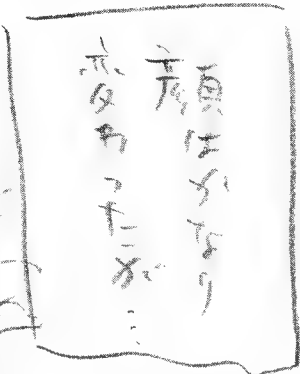 顔はかなり
変わったが…